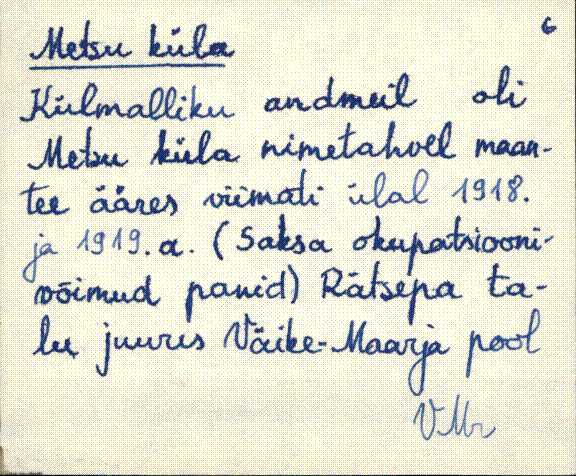 6
Metsu küla
Külmalliku andmeil oli
Metsu küla nimetahvel maan-
tee ääres viimati ülal 1918.
ja 1919.a. (Saksa okupatsiooni-
võimud panid) Rätsepa ta-
lu juures Väike-Maarja pool
VMr